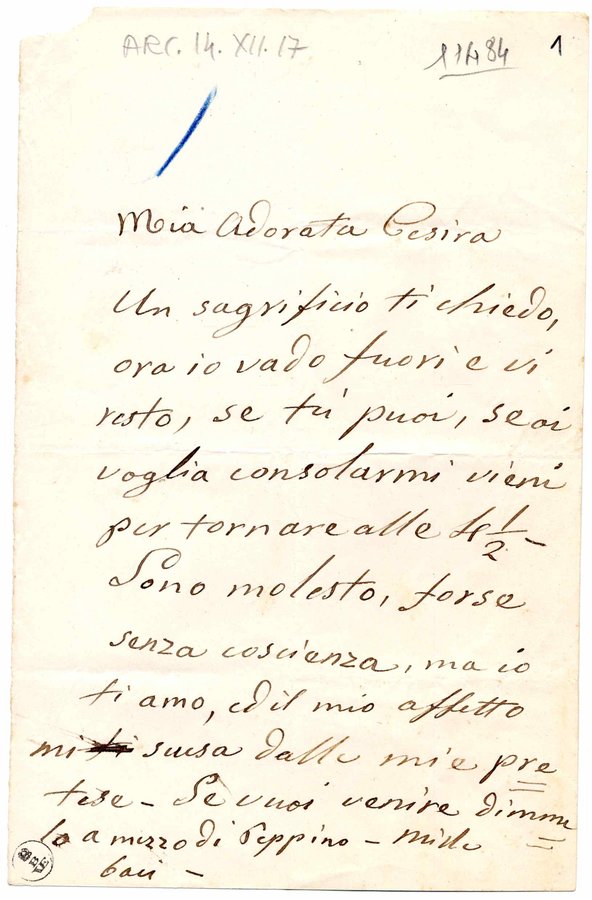 ARC. 14. XII. 17
11484
1
Mia Adorata Cesira
Un sagrificio ti chiedo,
ora io vado fuori e vi
resto, se tu puoi, se ai
voglia consolarmi vieni
per tornare alle 4 1/2 -
Sono molesto, forse
senza coscienza, ma io
ti amo, ed il mio affetto
mi ti scusa dalle mie pre
tese - Se vuoi venire dimme
lo a mezzo di Peppino - Mille
baci -